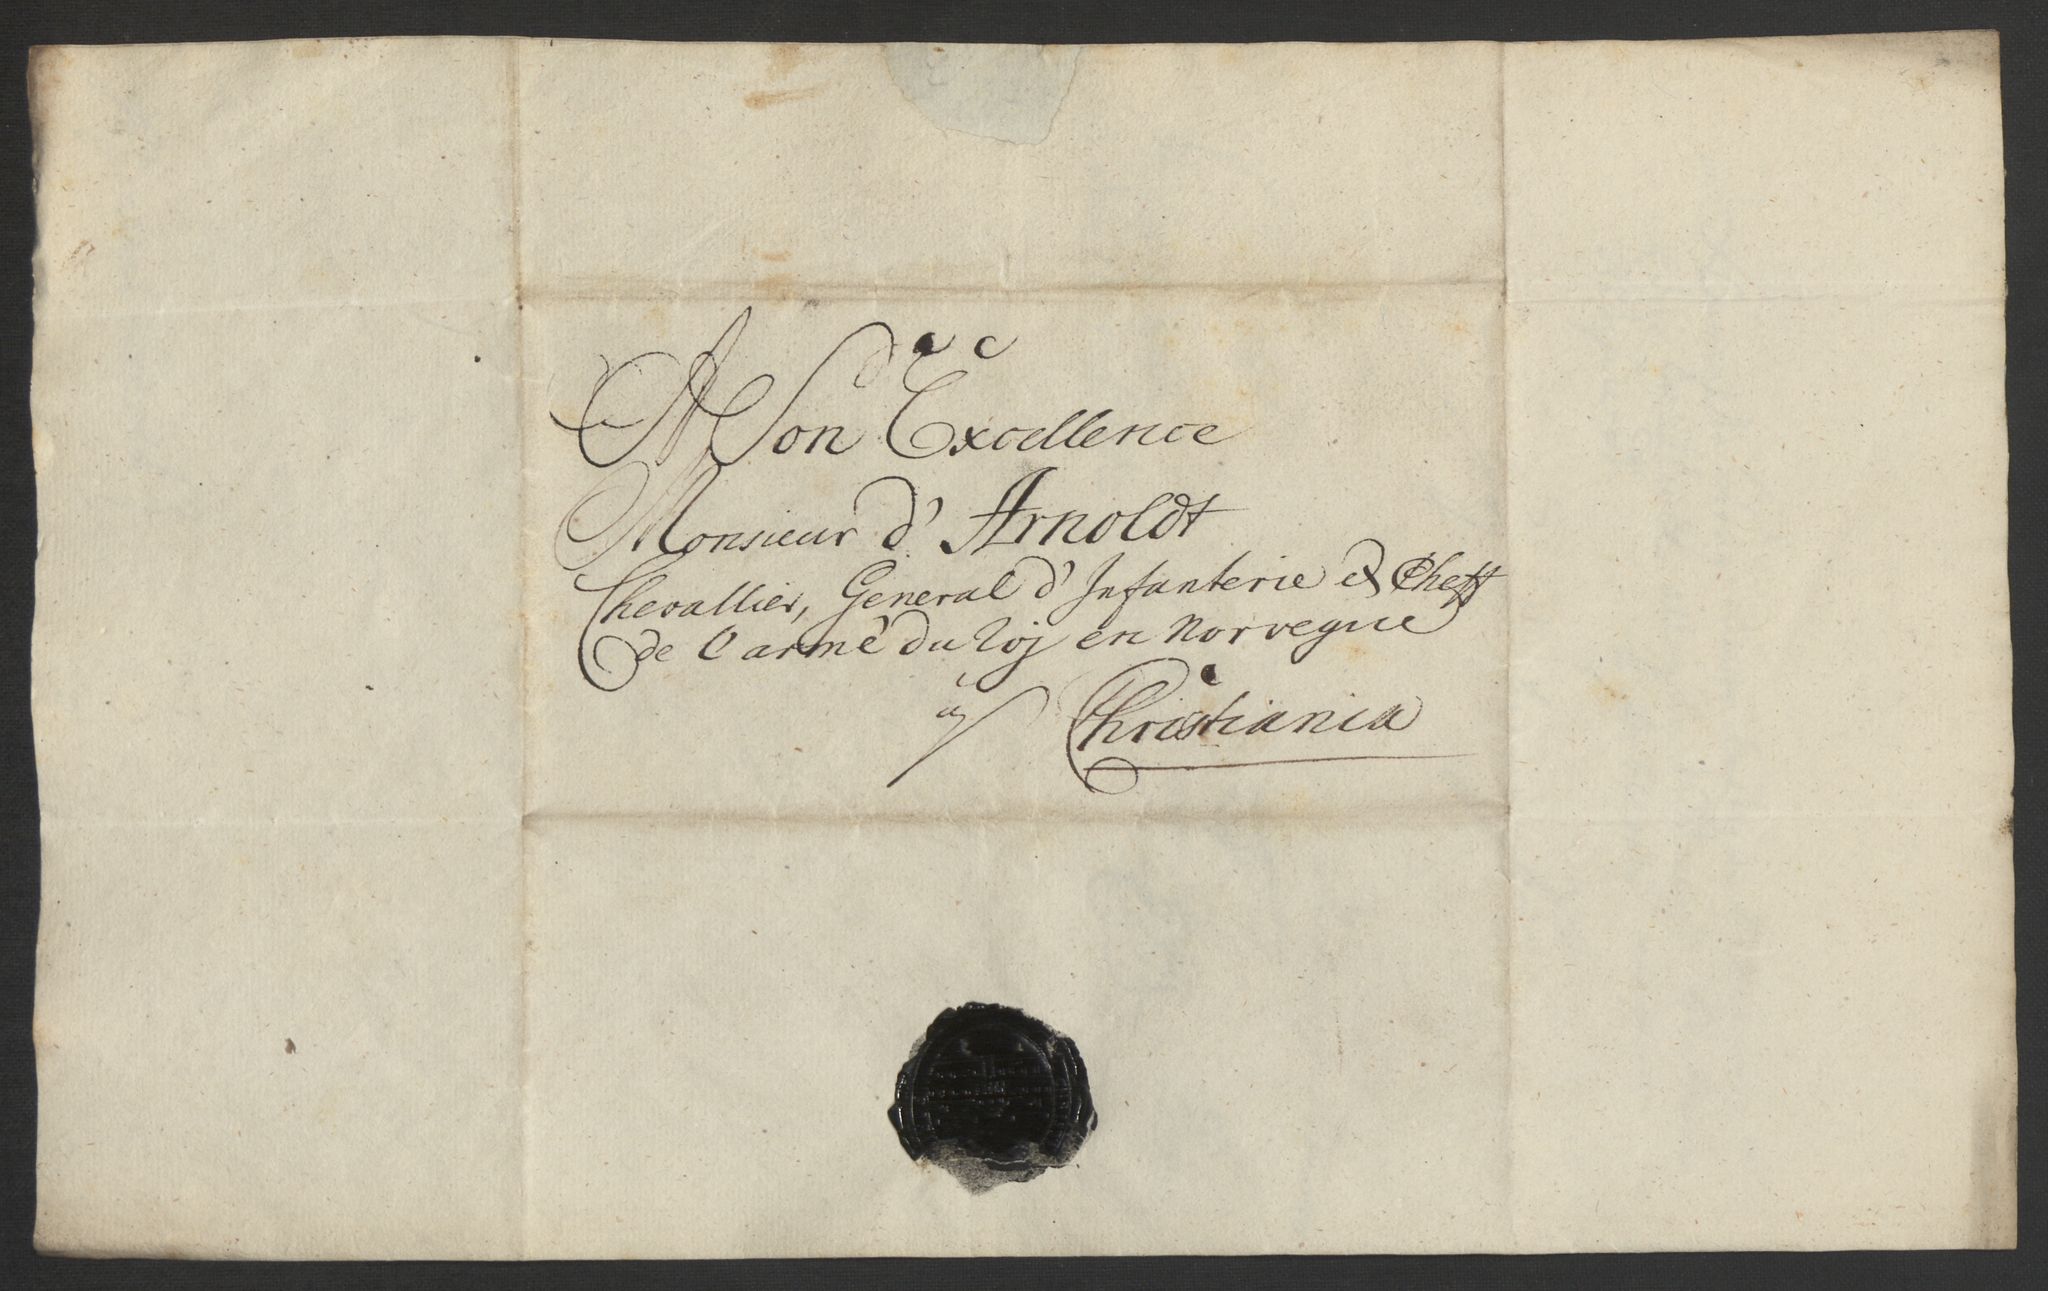 A Son Excellence
Monsieur d' Arnoldt
Chevallier, General d' Infanterie & Cheff
de l'armé du Roj en Norvegue
à Christiania